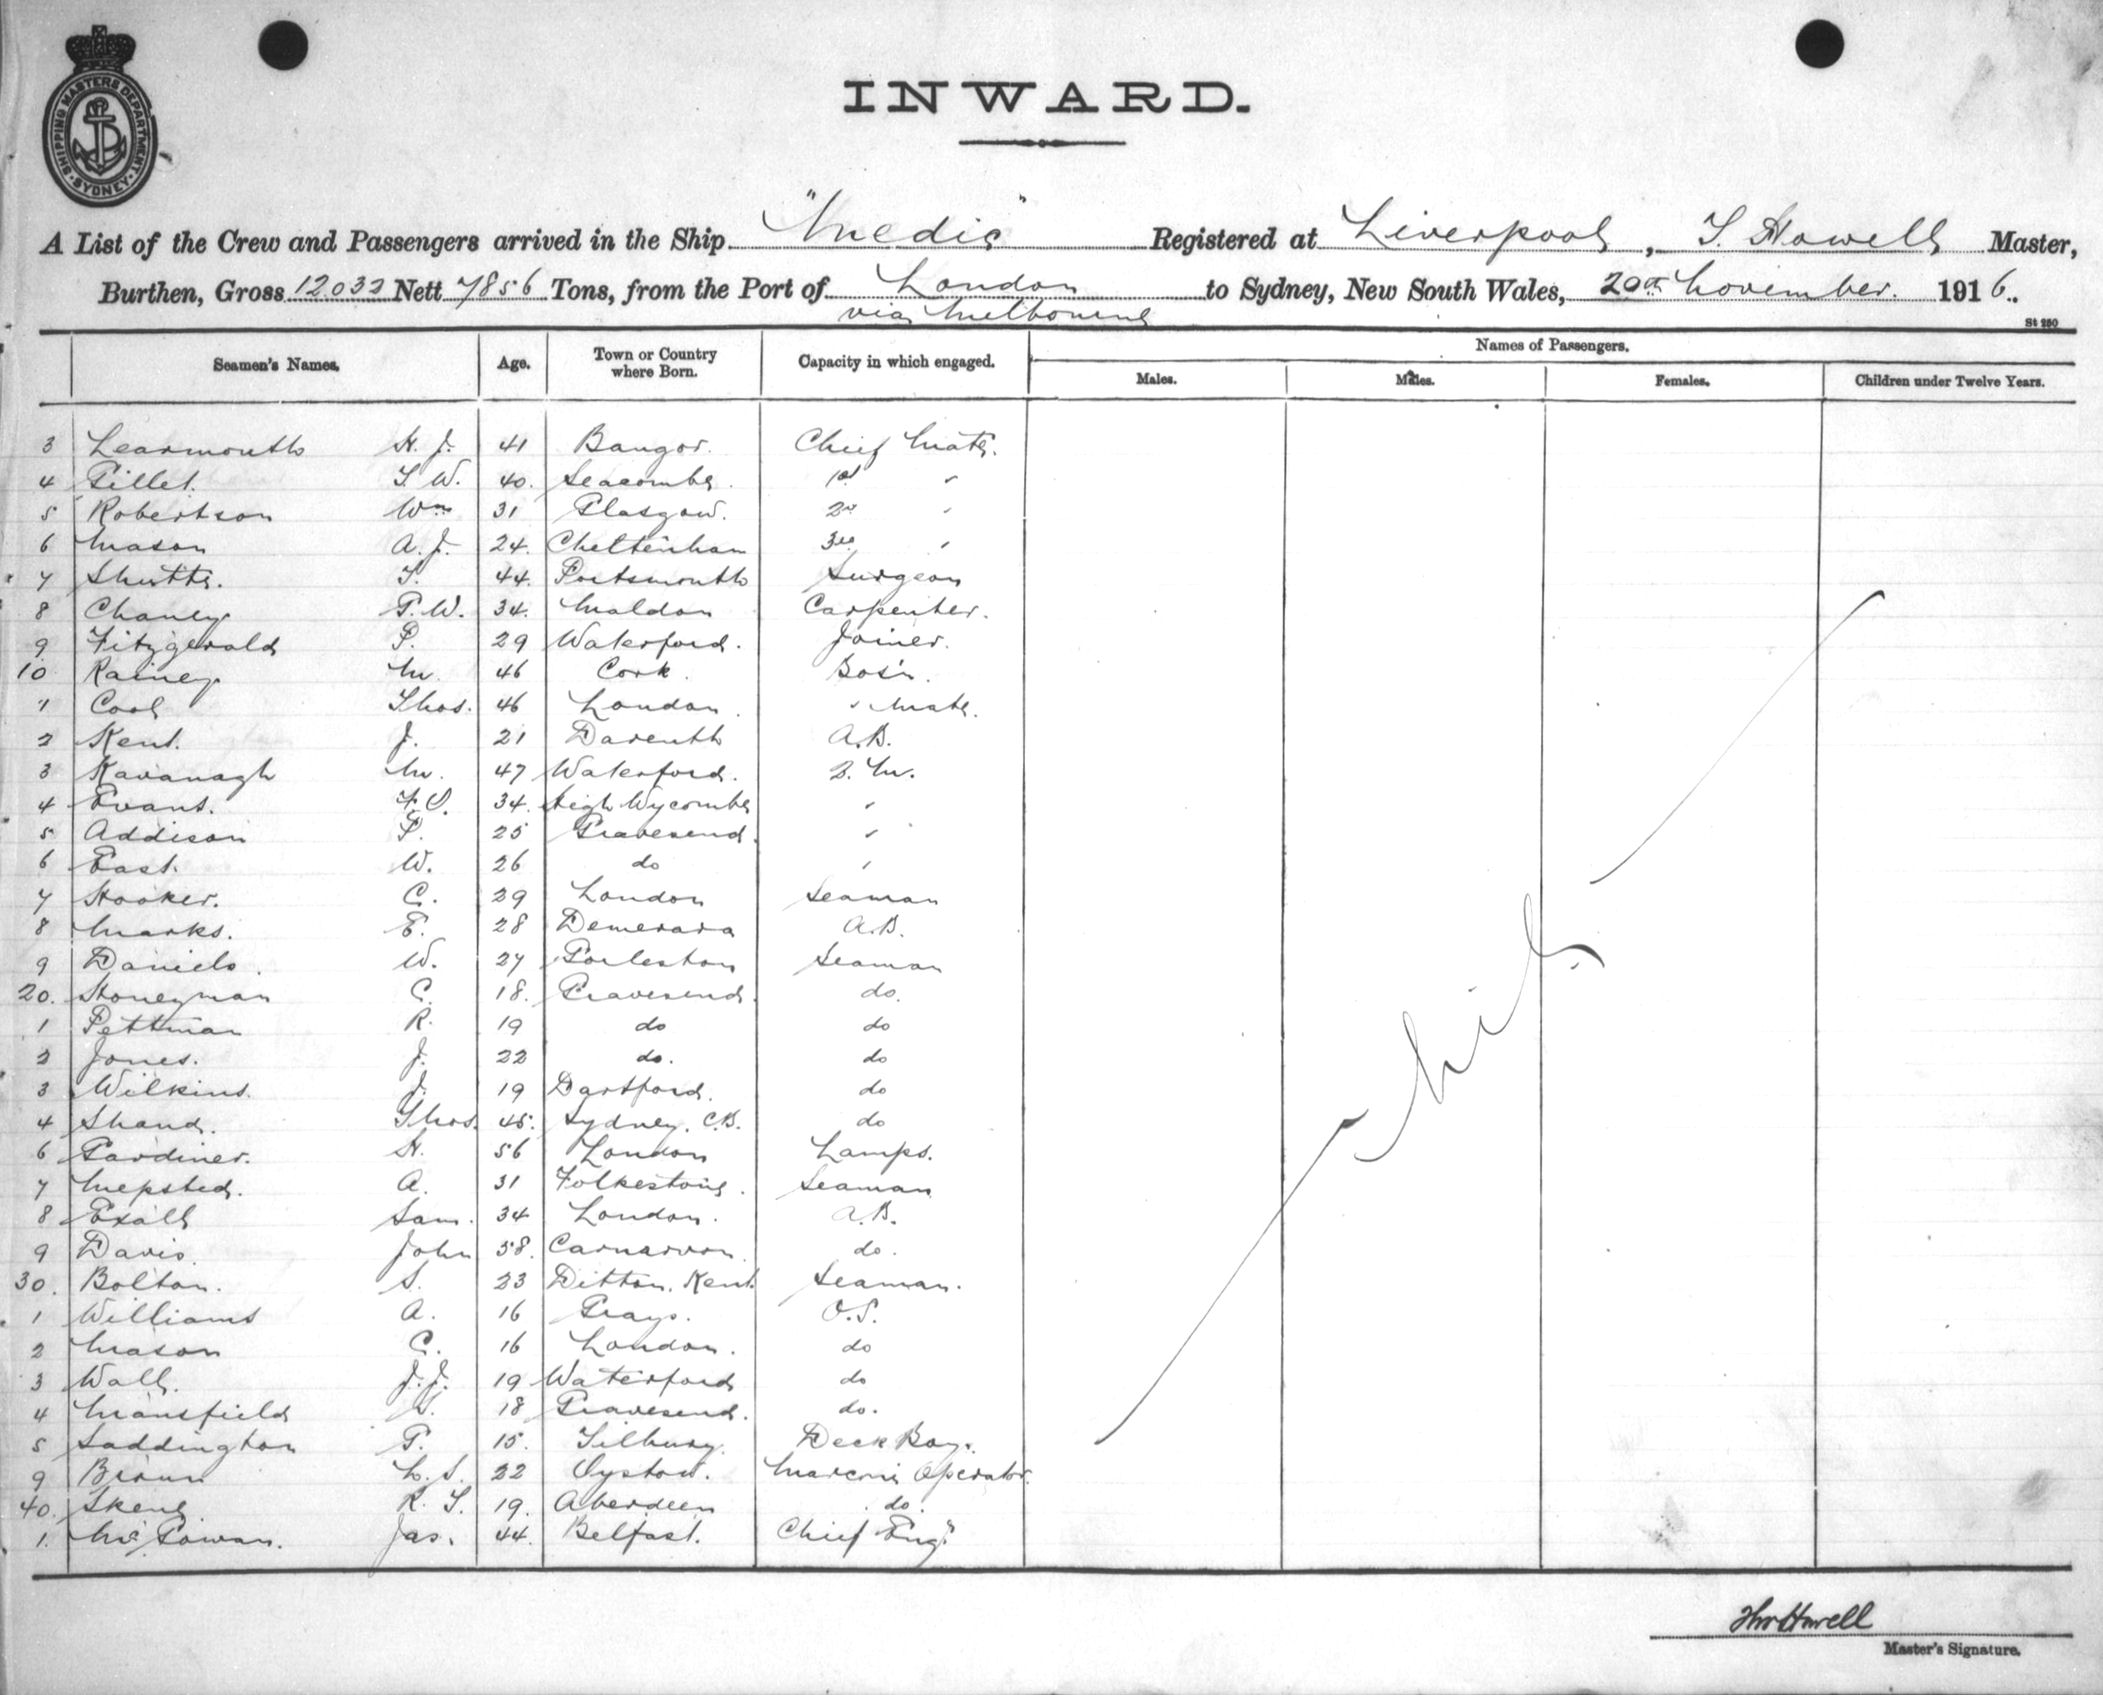 SHIPPING MASTERS DEPARTMENT
SYDNEY
INWARD.
A List of the Crew and Passengers arrived in the Ship "Medic" Registered at Liverpool, T. Howell Master,
Burthen, Gross 12032 Nett 7856 Tons, from the Port of London to Sydney, New South Wales, 20th November. 1916.
via Melbourne
St 250
Seamen's Names. Age. Town or Country where Born. Capacity in which engaged. Names of Passengers.
Males. Males. Females. Children under Twelve Years.
3 Learmouth H. J. 41 Bangor. Chief Mate.
4 Pillet. T W. 40. Seacombe. 1st "
5 Robertson Wm 31 Glasgow. 2nd "
6 Mason A. J. 24. Cheltenham 3rd "
7 Shutte. T. 44. Portsmouth Surgeon
8 Chaney P. W. 34. Maldon Carpenter.
9 Fitzgerald P. 29 Waterford. Joiner.
10 Rainey M. 46 Cork. Bos'n.
" Cool Thos. 46 London. " Mate.
2 Kent. J. 21 Darenth A.B.
3 Kavanagh M. 47 Waterford. Q. M.
4 Evans. 34. High Wycombe "
5 Addison P. 25 Gravesend. "
6 East. W. 26 do "
7 Hooker. C. 29 London Seaman
8 Marks. E. 28 Demerara A.B.
9 Daniels. W. 27 Gorleston Seaman
20. Honeyman C. 18. Gravesend. do.
1 Pettman R. 19 do do
2 Jones. J. 22 do. do
3 Wilkins. J. 19 Dartford. do
4 Shand. Thos. 45. Sydney. C.B. do
6 Gardiner. H. 56 London Lamps.
7 Mepsted. A. 31 Folkestone. Seaman
8 Exall Sam. 34 London. A.B.
9 Davis John 58. Carnarvon. do.
30. Bolton. S. 23 Ditton. Kent. Seaman.
1 Williams A. 16 Grays. O.S.
2 Mason C. 16 London. do
3 Wall. J. J. 19 Waterford do
4 Mansfield 18 Gravesend. do.
5 Saddington G. 15. Tilbury. Deck Boy.
9 L. S. 22 Marconi Operator.
40. Skene R. T. 19. Aberdeen do.
1. McGowan. Jas. 44. Belfast. Chief Engr
Nil
Thos Howell
Master's Signature.